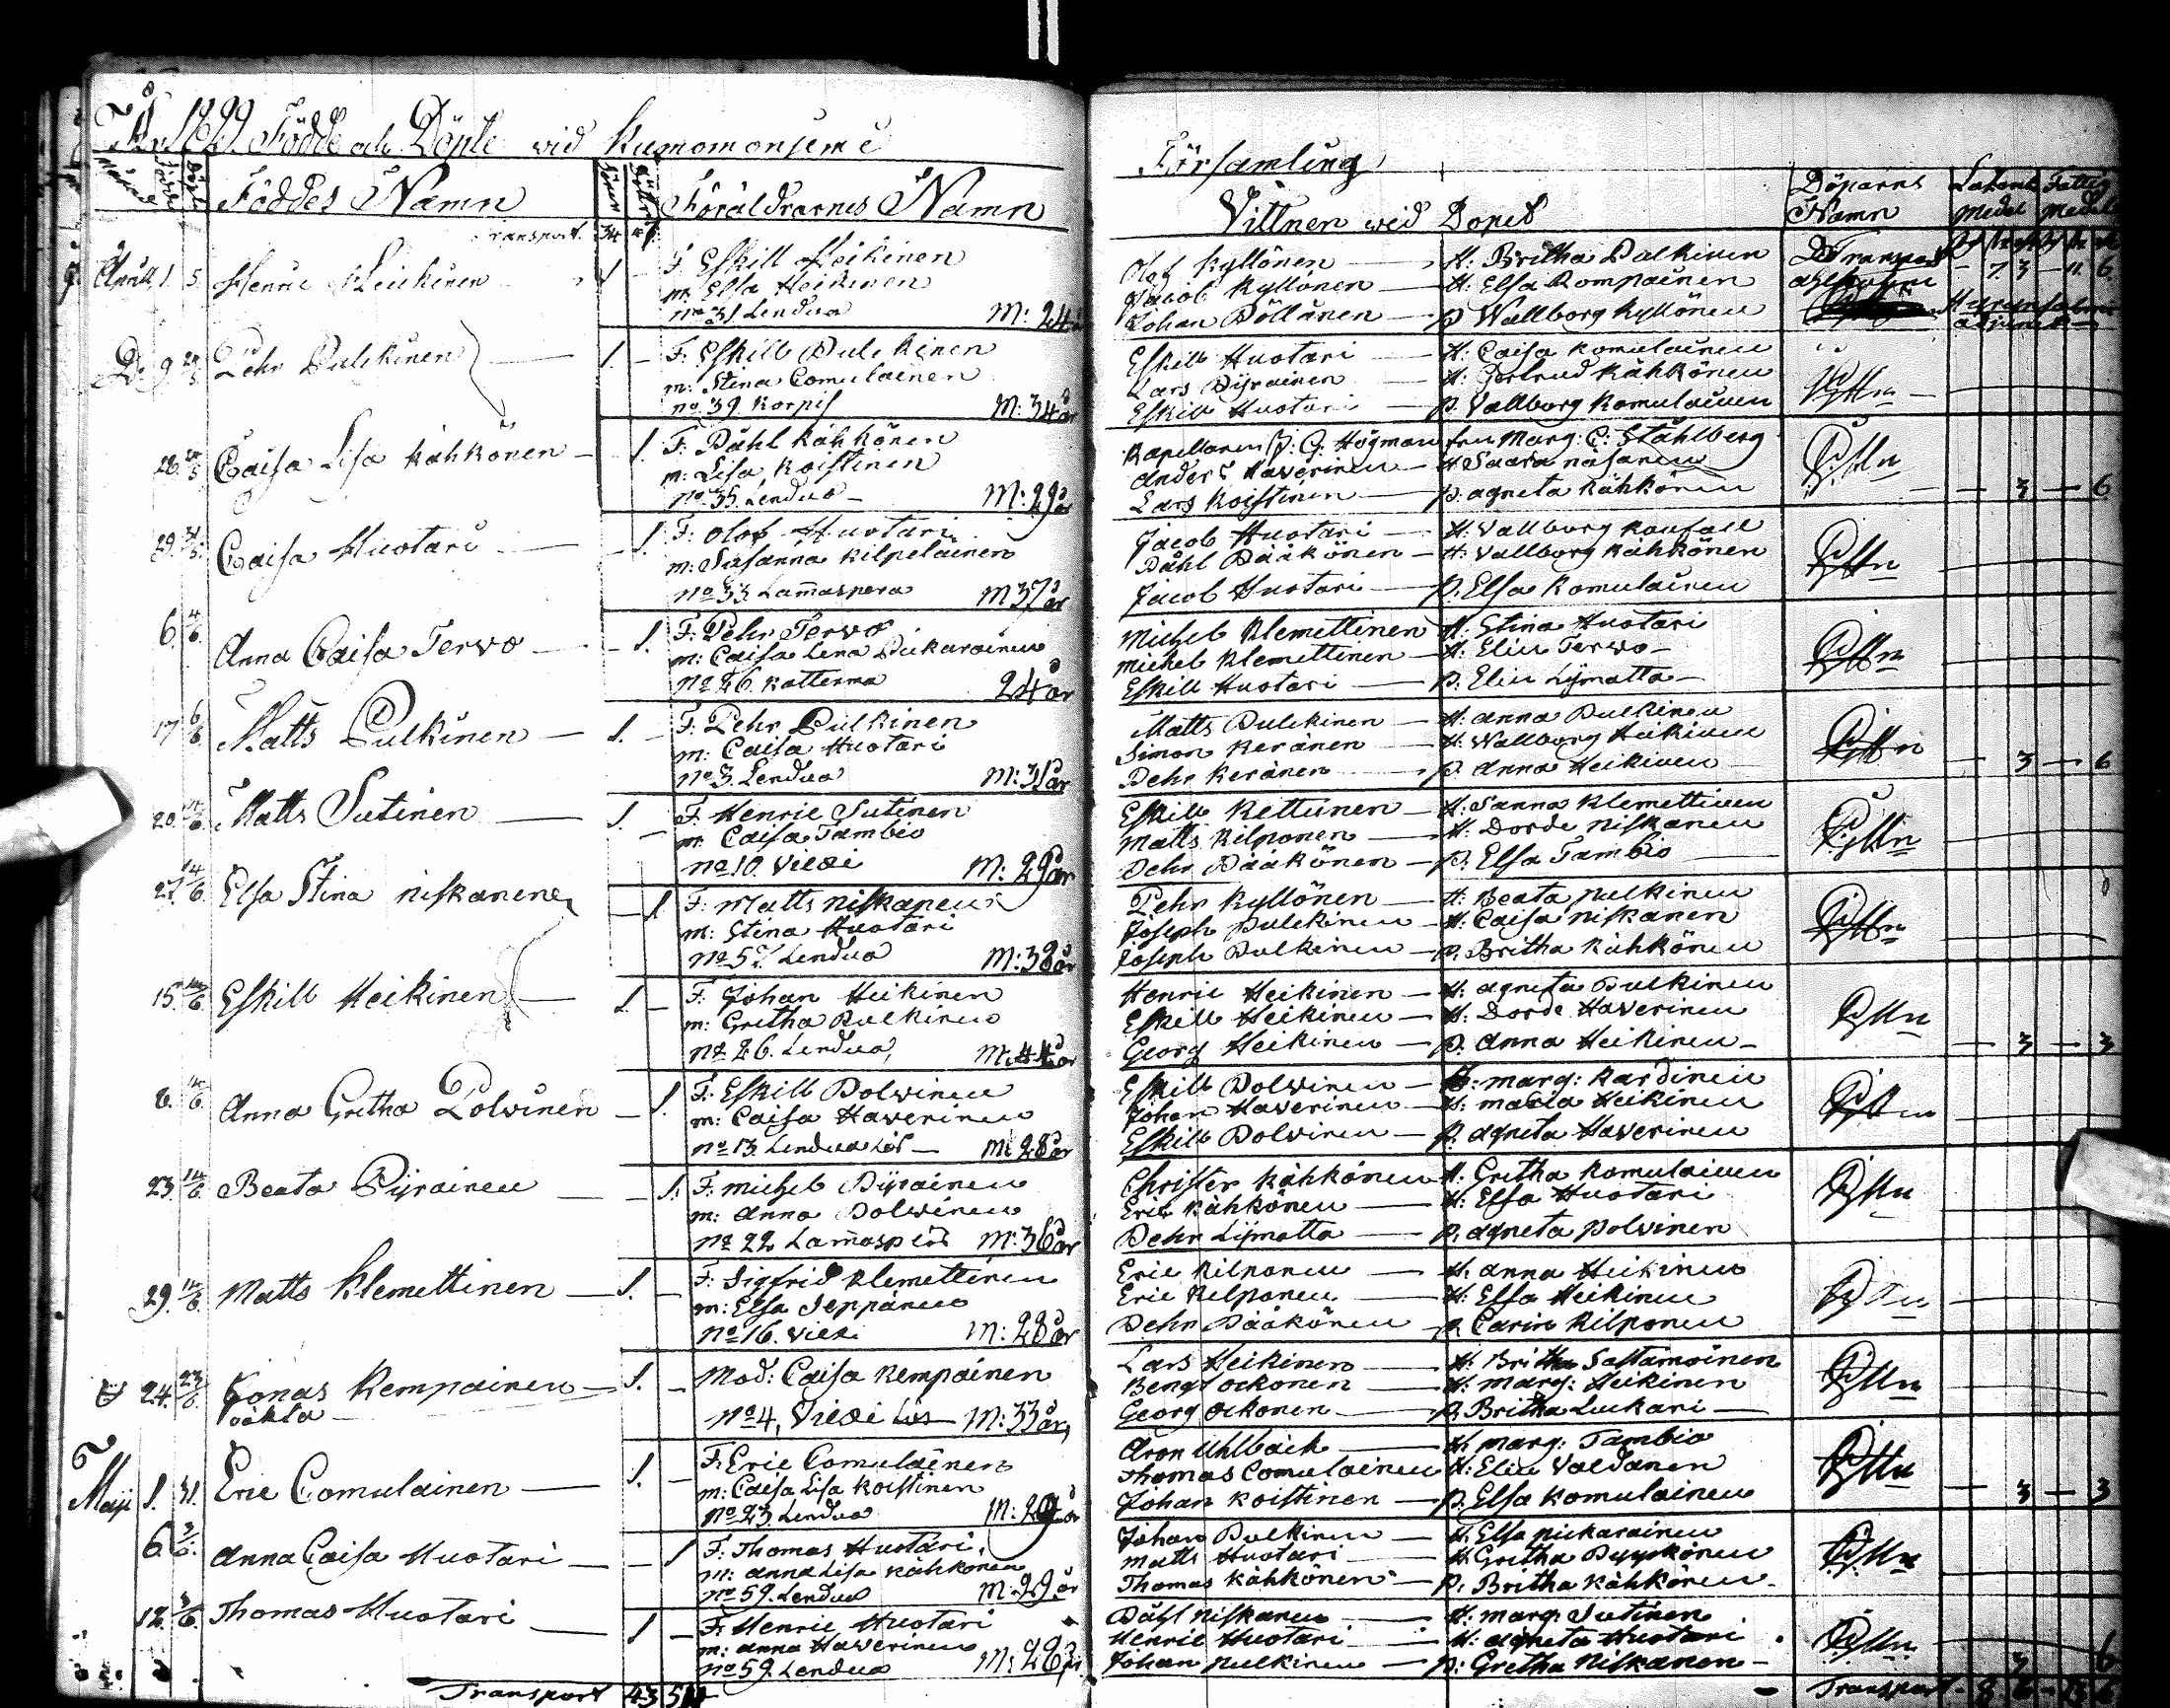 Födde och Döpte wid Kumomonjemi
Församling
Föddes Namn
Föräldrarnes Namn
Vittnen wid Dopet
Döparns Namn
Medel
Transport. 34
Aprill 1. 5. Henric Heickinen 1 —
F: Eskill Heikinen
m: Elsa Heikinen
No 31. Lendua M: 24
Olof Kyllönen — H: Britha Pulkinen
Jacob Kyllönen — H: Elsa Kompainen
Johan Pöllänen — p. Wallborg Kyllönen
D. 9. Pehr Pulckinen — 1. —
F: Eskill Pulckinen
m: Stina Comulainen
No 39 Korpis M: 34 år
Eskill Huotari — H: Caisa Komulainen
Lars Pyrainen — H: Gertrud Kähkönen
Eskill Huotari — p. Vallborg Komulainen
28. Caisa Lisa Kähkönen — 1.
F: Påhl Kähkönen
m: Lisa Koistinen
No 35. Lendua — M: 29 år
Kapellanen J: G: Högman fru Marg: C: Ståhlberg
Anders Haverinen — H Saara Näsänen
Lars Koistinen — p. Agneta Kähkönen
— 3 — 6
29. Caisa Huotari — 1.
F: Olof Huotari
m: Susanna Kilpeläinen
No 33. Lam̄aspera M 37 år
Jacob Huotari — H: Vallborg Kaufall
Påhl Pääkönen — H: Vallborg Kähkönen
Jacob Huotari — p. Elsa Komulainen
6. 4/6. Anna Caisa Tervo — 1.
F: Pehr Tervo
m: Caisa Lena Pickarainen
No 26. Katterma 24 år
Michel Klemettinen H. Stina Huotari
Michel Klemettinen — H: Elin Tervo —
Eskill Huotari — p. Elin Lymatta —
17 6/6 Matts Pulkinen — 1. —
F: Pehr Pulkinen
m: Caisa Huotari
No 3. Lendua M: 31 år
Matts Pulckinen — H: Anna Pulkinen
Simon Keränen — H: Wallborg Heikinen
Pehr Keränen — p. Anna Heikinen
— 3 — 6
20. Matts Sutinen — 1. —
F: Henric Sutinen
m: Caisa Tambio
No 10. Viexi M: 29 år
Eskill Kettunen — H: Sanna Klemettinen
Matts Kilponen — H: Dorde Niskanen
Pehr Pääkönen — p. Elsa Tambio
27. 14/6. Elsa Stina Niskanen — 1.
F: Matts Niskanen
m: Stina Huotari
No 57 Lendua M: 38 år
Pehr Kyllönen — H: Beata Pulkinen
Joseph Pulckinen — H: Caisa Niskanen
Joseph Pulkinen — p. Britha Kähkönen
15. 14/6 Eskill Heikinen — 1. —
F: Johan Heikinen
m: Gretha Pulkinen
No 26. Lendua, M: 44 år
Henric Heikinen — H: Agneta Pulkinen
Eskill Heikinen — H: Dorde Haverinen
Georg Heikinen — p. Anna Heikinen —
— 3 — 3
8. 14/6. Anna Gretha Polvinen — 1.
F: Eskill Polvinen
m: Caisa Haverinen
No 13. Lendua Lös — M: 28 år
Eskill Polvinen — H: Marg: Kardinen
Johan Haverinen — H: Maria Heikinen
Eskill Polvinen — p. Agneta Haverinen
23. 14/6 Beata Pyrainen — 1.
F: Michel Pyrainen
m: Anna Polvinen
No 22 Lam̄aspera M: 36 år
Christer Kähkönen H. Gretha Komulainen
Eric Kähkönen — H: Elsa Huotari
Pehr Lymatta — p. Agneta Polvinen
29. 14/6 Matts Klemettinen — 1. —
F: Sigfrid Klemettinen
m: Elsa Seppänen
No 16. Viexi M: 28 år
Eric Kilponen — H: Anna Heikinen
Eric Kilponen — H: Elsa Heikinen
Pehr Pääkönen — p. Carin Kilponen
24. 23/6. Jonas Kempainen — 1. —
oäkta —
Mod: Caisa Kempainen
No 4, Viexi Lös — M: 33 år,
Lars Heikinen — H: Britha Saltamoinen
Bengt Ockonen — H: Marg: Heikinen
Georg Ockonen — p. Britha Luckari —
Maji 1. 31. Eric Comulainen — 1. —
F: Eric Comulainen
m: Caisa Lisa Koistinen
No 23. Lendua M: 29 år
Aron Uhlbäck — H. Marg: Tambio
Thomas Comulainen H: Elin Valdanen
Johan Koistinen — p. Elsa Komulainen
— 3 — 3
6. 3/6. Anna Caisa Huotari — 1
F: Thomas Huotari,
m: Anna Lisa Kähkönen
No 59. Lendua M: 29. år
Johan Pulkinen — H. Elsa Pickarainen
Matts Huotari — H Gretha Pyykönen
Thomas Kähkönen — p. Britha Kähkönen
12. 3/6. Thomas Huotari — 1 —
F: Henric Huotari
m: Anna Haverinen
No 59. Lendua M: 28
Påhl Niskanen — H: Marg: Sutinen
Henric Huotari — H: Agneta Huotari
Johan Pulkinen — p: Gretha Niskanen —
Transport 43
Transport